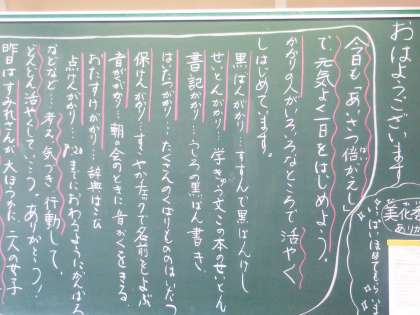 おはようございます
今日も「あいさつ倍がえし」
で、元気よく一日をはじめよう。
かかりの人がいろいろなところで活やく
しはじめています。
黒ばんがかり…すすんで黒ばんけし
せいとんがかり…学きゅう文この本のせいとん
書記がかり…うしろの黒ばん書き
はいたつがかり…たくさんのくばりもののはいたつ
保けんがかり…すこやかカードで名前をよぶ
音がくがかり…朝の会のときに音がくをきる
おたすけがかり…辞典はこび
点けんがかり…8:20までにおわるようにがんばる
などなど…考え、気づき、行動して、
どんどん活やくしていこう。ありがとう！
昨日はすみれさんが大はつかつ。二人の女子
美化
あり
いっぱい